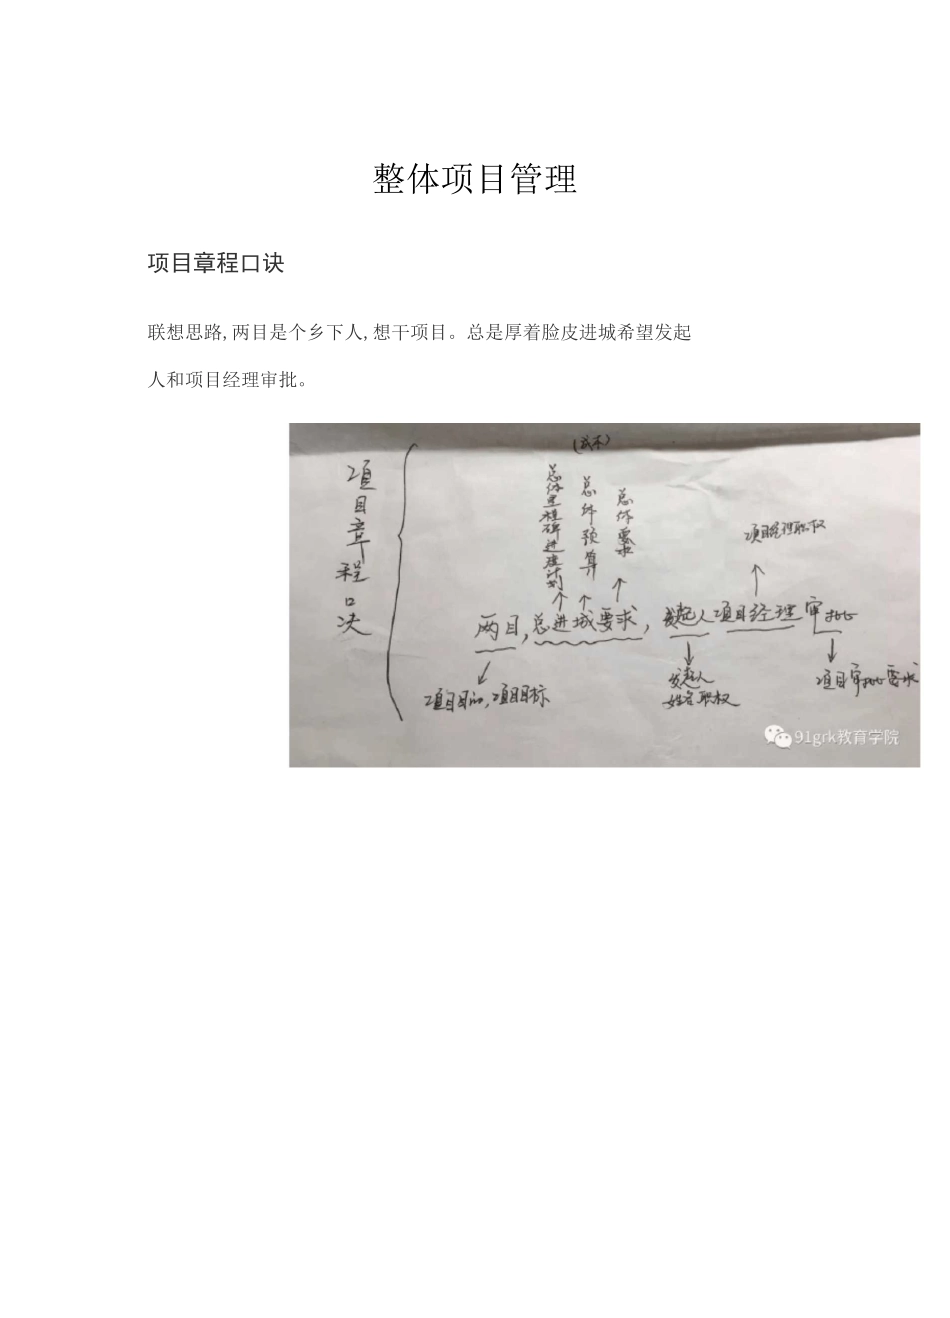 整体项目管理
项目章程口诀
联想思路,两目是个乡下人,想干项目。总是厚着脸皮进城希望发起
人和项目经理审批。
项目章程口决
(成本)
总体里程碑进度计划
总体预算
总体要求
项目经理职权
两目,总进城要求,发起人项目经理审批
项目目的,项目目标
发起人
姓名职权
项目审批要求
91grk教育学院